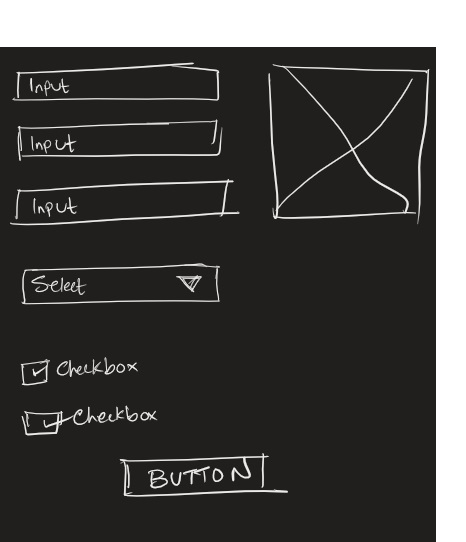 Input
Input
Input
Select
Checkbox
Checkbox
BUTTON